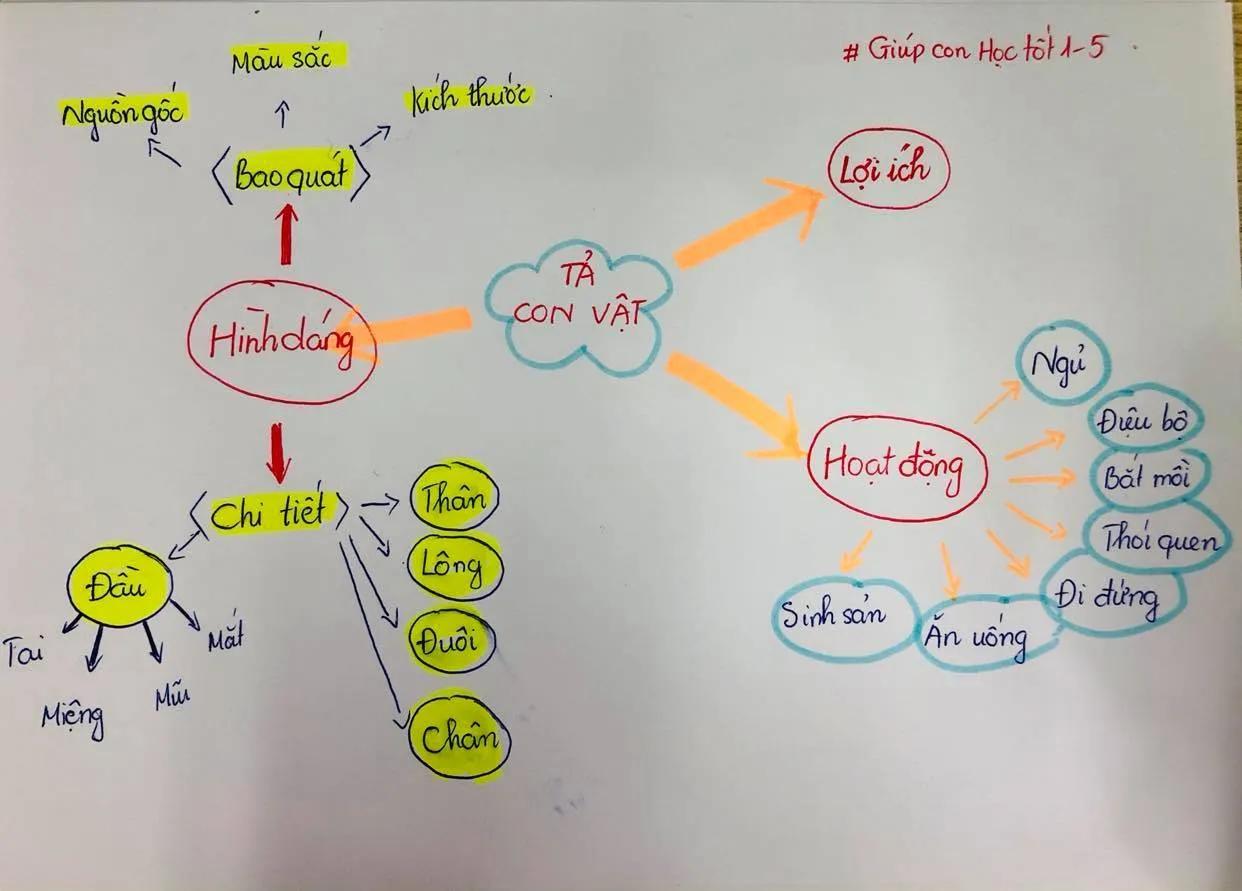 # Giúp con Học tốt 1-5
Màu sắc
Nguồn gốc
Kích thước
Bao quát
Lợi ích
TẢ
CON VẬT
Hình dáng
Ngủ
Điệu bộ
Hoạt động
Bắt mồi
Thói quen
Đi đứng
Ăn uống
Sinh sản
Chi tiết
Thân
Lông
Đuôi
Chân
Đầu
Tai
Miệng
Mũi
Mắt